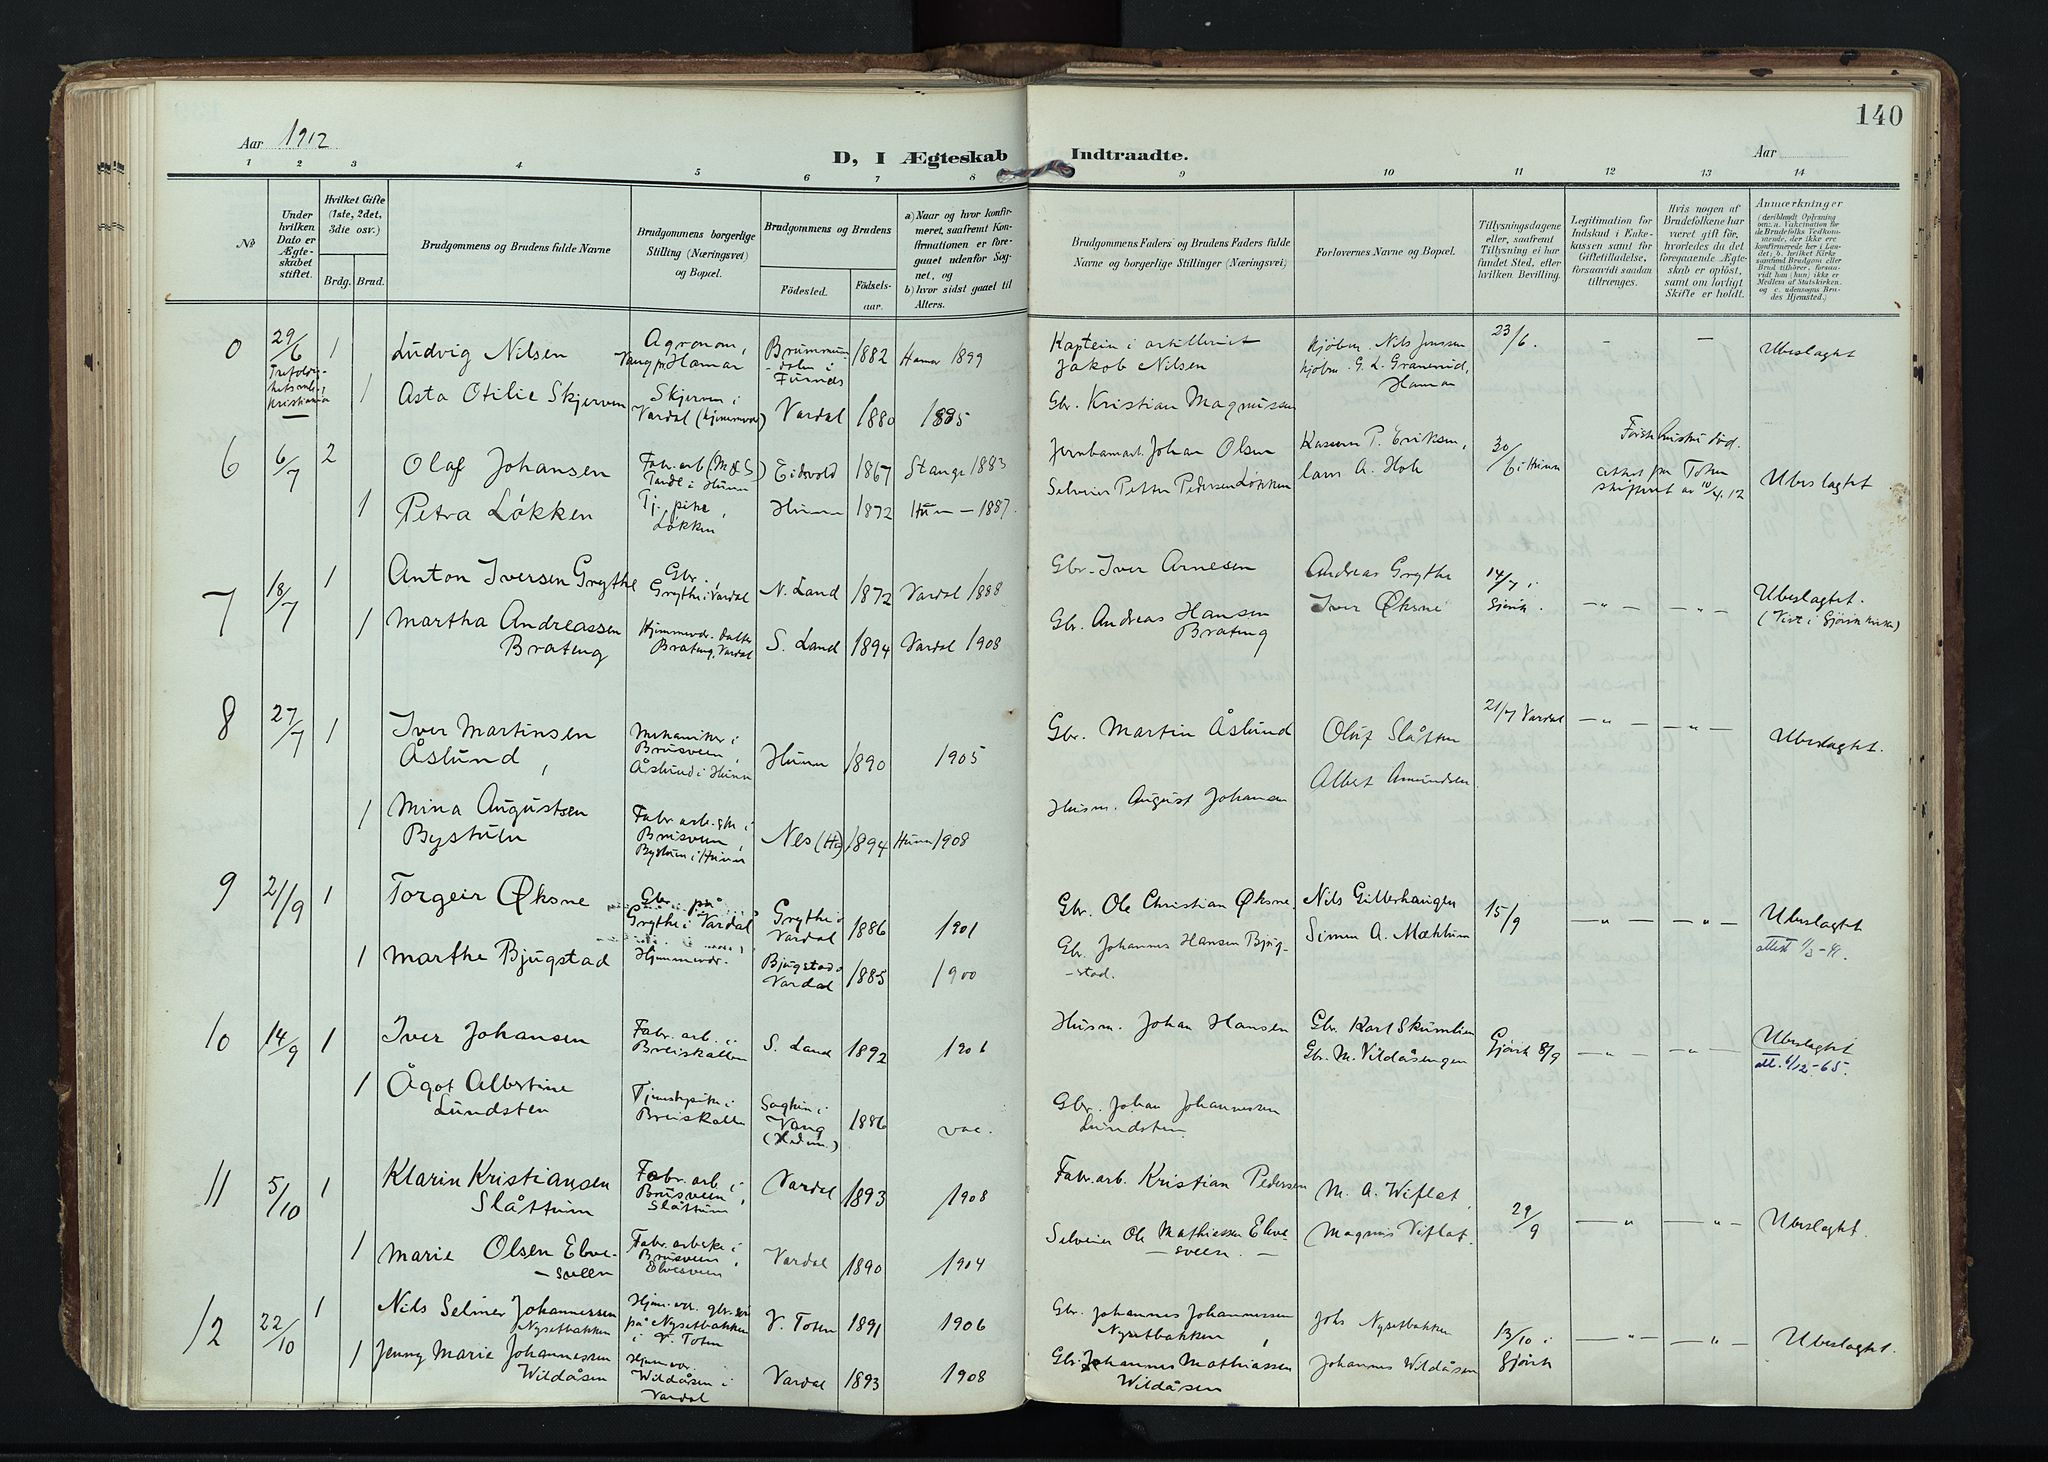 140
Aar 1912
D, I Ægteskab Indtraadte.
Aar
1 2 3 4 5 6 7 8 9 10 11 12 13 14
No
Under hvilken Dato er Ægteskabet stiftet.
Hvilket Gifte (1ste, 2det, 3die osv.)
Brdg. Brud.
Brudgommens og Brudens fulde Navne
Brudgommens borgerlige Stilling (Næringsvei) og Bopæl.
Brudgommens og Brudens
Fødested. Fødselsaar.
a) Naar og hvor konfirmeret, saafremt Konfirmationen er foregaaet udenfor Sognet, og b) hvor sidst gaaet til Alters.
Brudgommens Faders og Brudens Faders fulde Navne og borgerlige Stillinger (Næringsvei)
Forlovernes Navne og Bopæl.
Tillysningsdagene eller, saafremt Tillysning ei har fundet Sted, efter hvilken Bevilling.
Legitimation for Indskud i Enkekassen samt for Giftetilladelse, forsaavidt saadan tiltrænges.
Hvis nogen af Brudefolkene har været gift før, hvorledes da det foregaaende Ægteskab er opløst, samt om lovligt Skifte er holdt.
Anmærkninger
0 29/6 Kristiania 1 Ludvig Nilsen Agronom, Vang pr Hamar Brummundalen i Furnes 1882 Hamar 1899 Kaptein i artilleriet Jakob Nilsen kjøbm. Nils Jenssen kjøbm. G. L. Granerud, Hamar 23/6. - - Ubeslægtet
1 Asta Otilie Skjerven Skjerven i Vardal (hjemmevær) Vardal 1880 1895 Gbr. Kristian Magnussen
6 6/7 2 Olaf Johansen Fabr. arb (M & S) i Hunn Eidsvold 1867 Stange 1883 Jernbanearb. Johan Olsen P. Eriksen, Lars A. Hoh 30/6 i Hunn Første hustru død. attest fra Toten skifteret av 10/4.12 Ubeslægtet
1 Petra Løkken Tj. pike, Løkken Hunn 1872 Hunn - 1887. Selveier Petter Pedersen Løkken
7 18/7 1 Anton Iversen Grythe Gbr. Grythe i Vardal N. Land 1872 Vardal 1888 Gbr. Iver Arnesen Andreas Grythe Iver Øksne 14/7 i Gjøvik. - " - - " - Ubeslægtet. (Viet i Gjøvik kirke)
1 Martha Andreassen Brateng Hjemmevær. datter Brateng, Vardal S. Land 1894 Vardal 1908 Gbr. Andreas Hansen Brateng
8 27/7 1 Iver Martinsen Åslund, Mekaniker i Brusveen, Åslund i Hunn Hunn 1890 1905 Gbr. Martin Åslund Oluf Slåtten Albert Amundsen 21/7 Vardal - " - - " - Ubeslægtet.
1 Mina Augustsen Bystuen Fabr. arb.ske i Brusveen, Bystuen i Hunn Nes (He) 1894 Hunn 1908 Husm. August Johansen
9 21/9 1 Torgeir Øksne Gbr. på Grythe i Vardal Grythe Vardal 1886 1901 Gbr. Ole Christian Øksne. Nils Gillerhaugen Simen A. Mæhlum 15/9 - " - - " - Ubeslægtet attest 1/3-41.
1 Marthe Bjugstad Hjemmevær. Bjugstad Vardal 1885 1900 Gbr. Johannes Hansen Bjugstad.
10 14/9 1 Iver Johansen Fabr. arb. i Breiskallen S. Land 1892 1906 Husm. Johan Hansen Gbr. Karl Skumlien Gbr. M. Vildåsengen Gjøvik 8/9 - " - - " - Ubeslægtet att. 6/12-65.
1 Ågot Albertine Lundsten Tjenestepike i Breiskallen Vang (Hedm.) 1886 vac. Gbr. Johan Johannessen Lundsten
11 5/10 1 Klarin Kristiansen Slåttum Fabr. arb i Brusveen, Slåttum Vardal 1893 1908 Fabr. arb. Kristian Pedersen M. A. Wiflat, Magnus Viflat. 29/9 - " - - " - Ubeslægtet.
1 Marie Olsen Elvesveen Fabr. arbske i Brusveen, Elvesveen Vardal 1890 1904 Selveier Ole Mathiessen Elvesveen.
12 22/10 1 Nils Selmer Johannessen Nysetbakken Hjem. vær. gbr. søn på Nysetbakken i V. Toten V. Toten 1891 1906 Gbr. Johannes Johannessen Nysetbakken, Johs Nysetbakken Johannes Wildåsen 13/10 i Gjøvik - " - - " - Ubeslægtet.
1 Jenny Marie Johannessen Wildåsen Hjem. vær. Wildåsen i Vardal Vardal 1893 1908 Gbr. Johannes Mathiassen Wildåsen